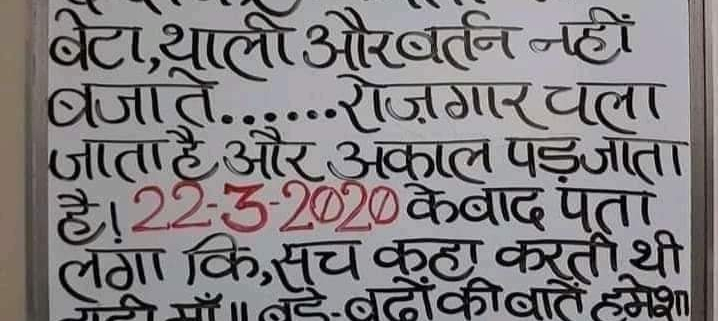 बेटा,थाली और बर्तन नहीं
बजाते......रोज़गार चला
जाता है और अकाल पड़ जाता
है! 22-3-2020 के बाद पता
लगा कि, सच कहा करती थी
माँ॥ बड़े-बूढ़ों की बातें हमेशा